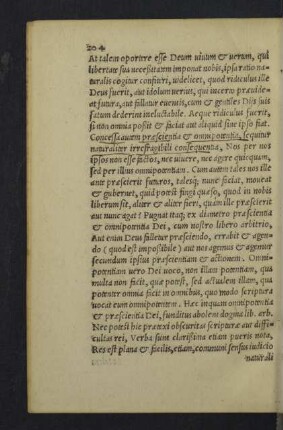 204
At talem oportere esse Deum uiuum & uerum, qui
libertate sua necessitatem imponat nobis, ipsa ratio na-
turalis cogitur confiteri, uidelicet, quod ridiculus ille
Deus fuerit, aut idolum uerius, qui incerto præuide-
at futura, aut fallatur euentis, cum & gentiles Diis suis
fatum dederint ineluctabile. Aeque ridiculus fuerit,
si non omnia possit & faciat aut aliquid sine ipso fiat.
Concessa autem præscientia & omnipotentia, sequitur
naturaliter irrefragabili consequentia, Nos per nos
ipsos non esse factos, nec uiuere, nec agere quicquam,
sed per illius omnipotentiam. Cum autem tales nos ille
ante præscierit futuros, talesq; nunc faciat, moueat
& gubernet, quid potest fingi quæso, quod in nobis
liberum sit, aliter & aliter fieri, quàm ille præscierit
aut nunc agat? Pugnat itaq; ex diametro præscientia
& omnipotentia Dei, cum nostro libero arbitrio,
Aut enim Deus falletur præsciendo, errabit & agen-
do (quod est impoßibile) aut nos agemus & agemur
secundum ipsius præscientiam & actionem. Omni-
potentiam uero Dei uoco, non illam potentiam, qua
multa non facit, quæ potest, sed actualem illam, qua
potenter omnia facit in omnibus, quo modo scriptura
uocat eum omnipotentem. Hæc inquam omnipotentia
& præscientia Dei, funditus abolent dogma lib. arb.
Nec potest hic prætexi obscuritas scripturæ aut diffi-
cultas rei, Verba sunt clarißima etiam pueris nota,
Res est plana & facilis, etiam, communi sensus iudicio
naturali